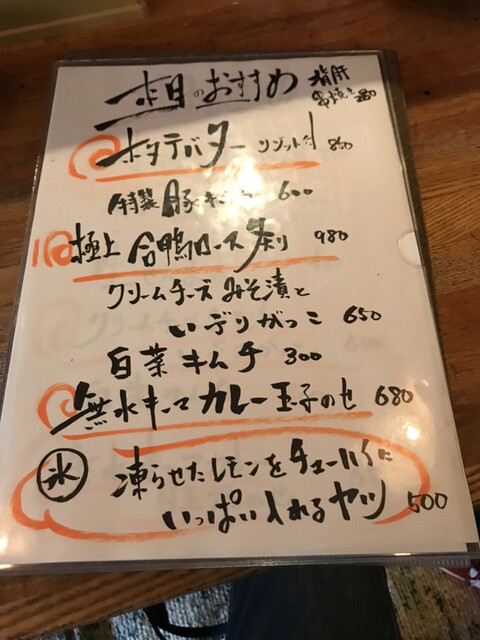 本日のおすすめ
背肝
串焼き 280
ホタテバター リゾット付 850
特製 豚キムチ 600
極上 合鴨ロース 炙り 980
クリームチーズみそ漬と
いぶりがっこ 650
白菜キムチ 300
無水キーマカレー玉子のせ 680
氷 凍らせたレモンをチューハイに
いっぱい入れるヤツ 500